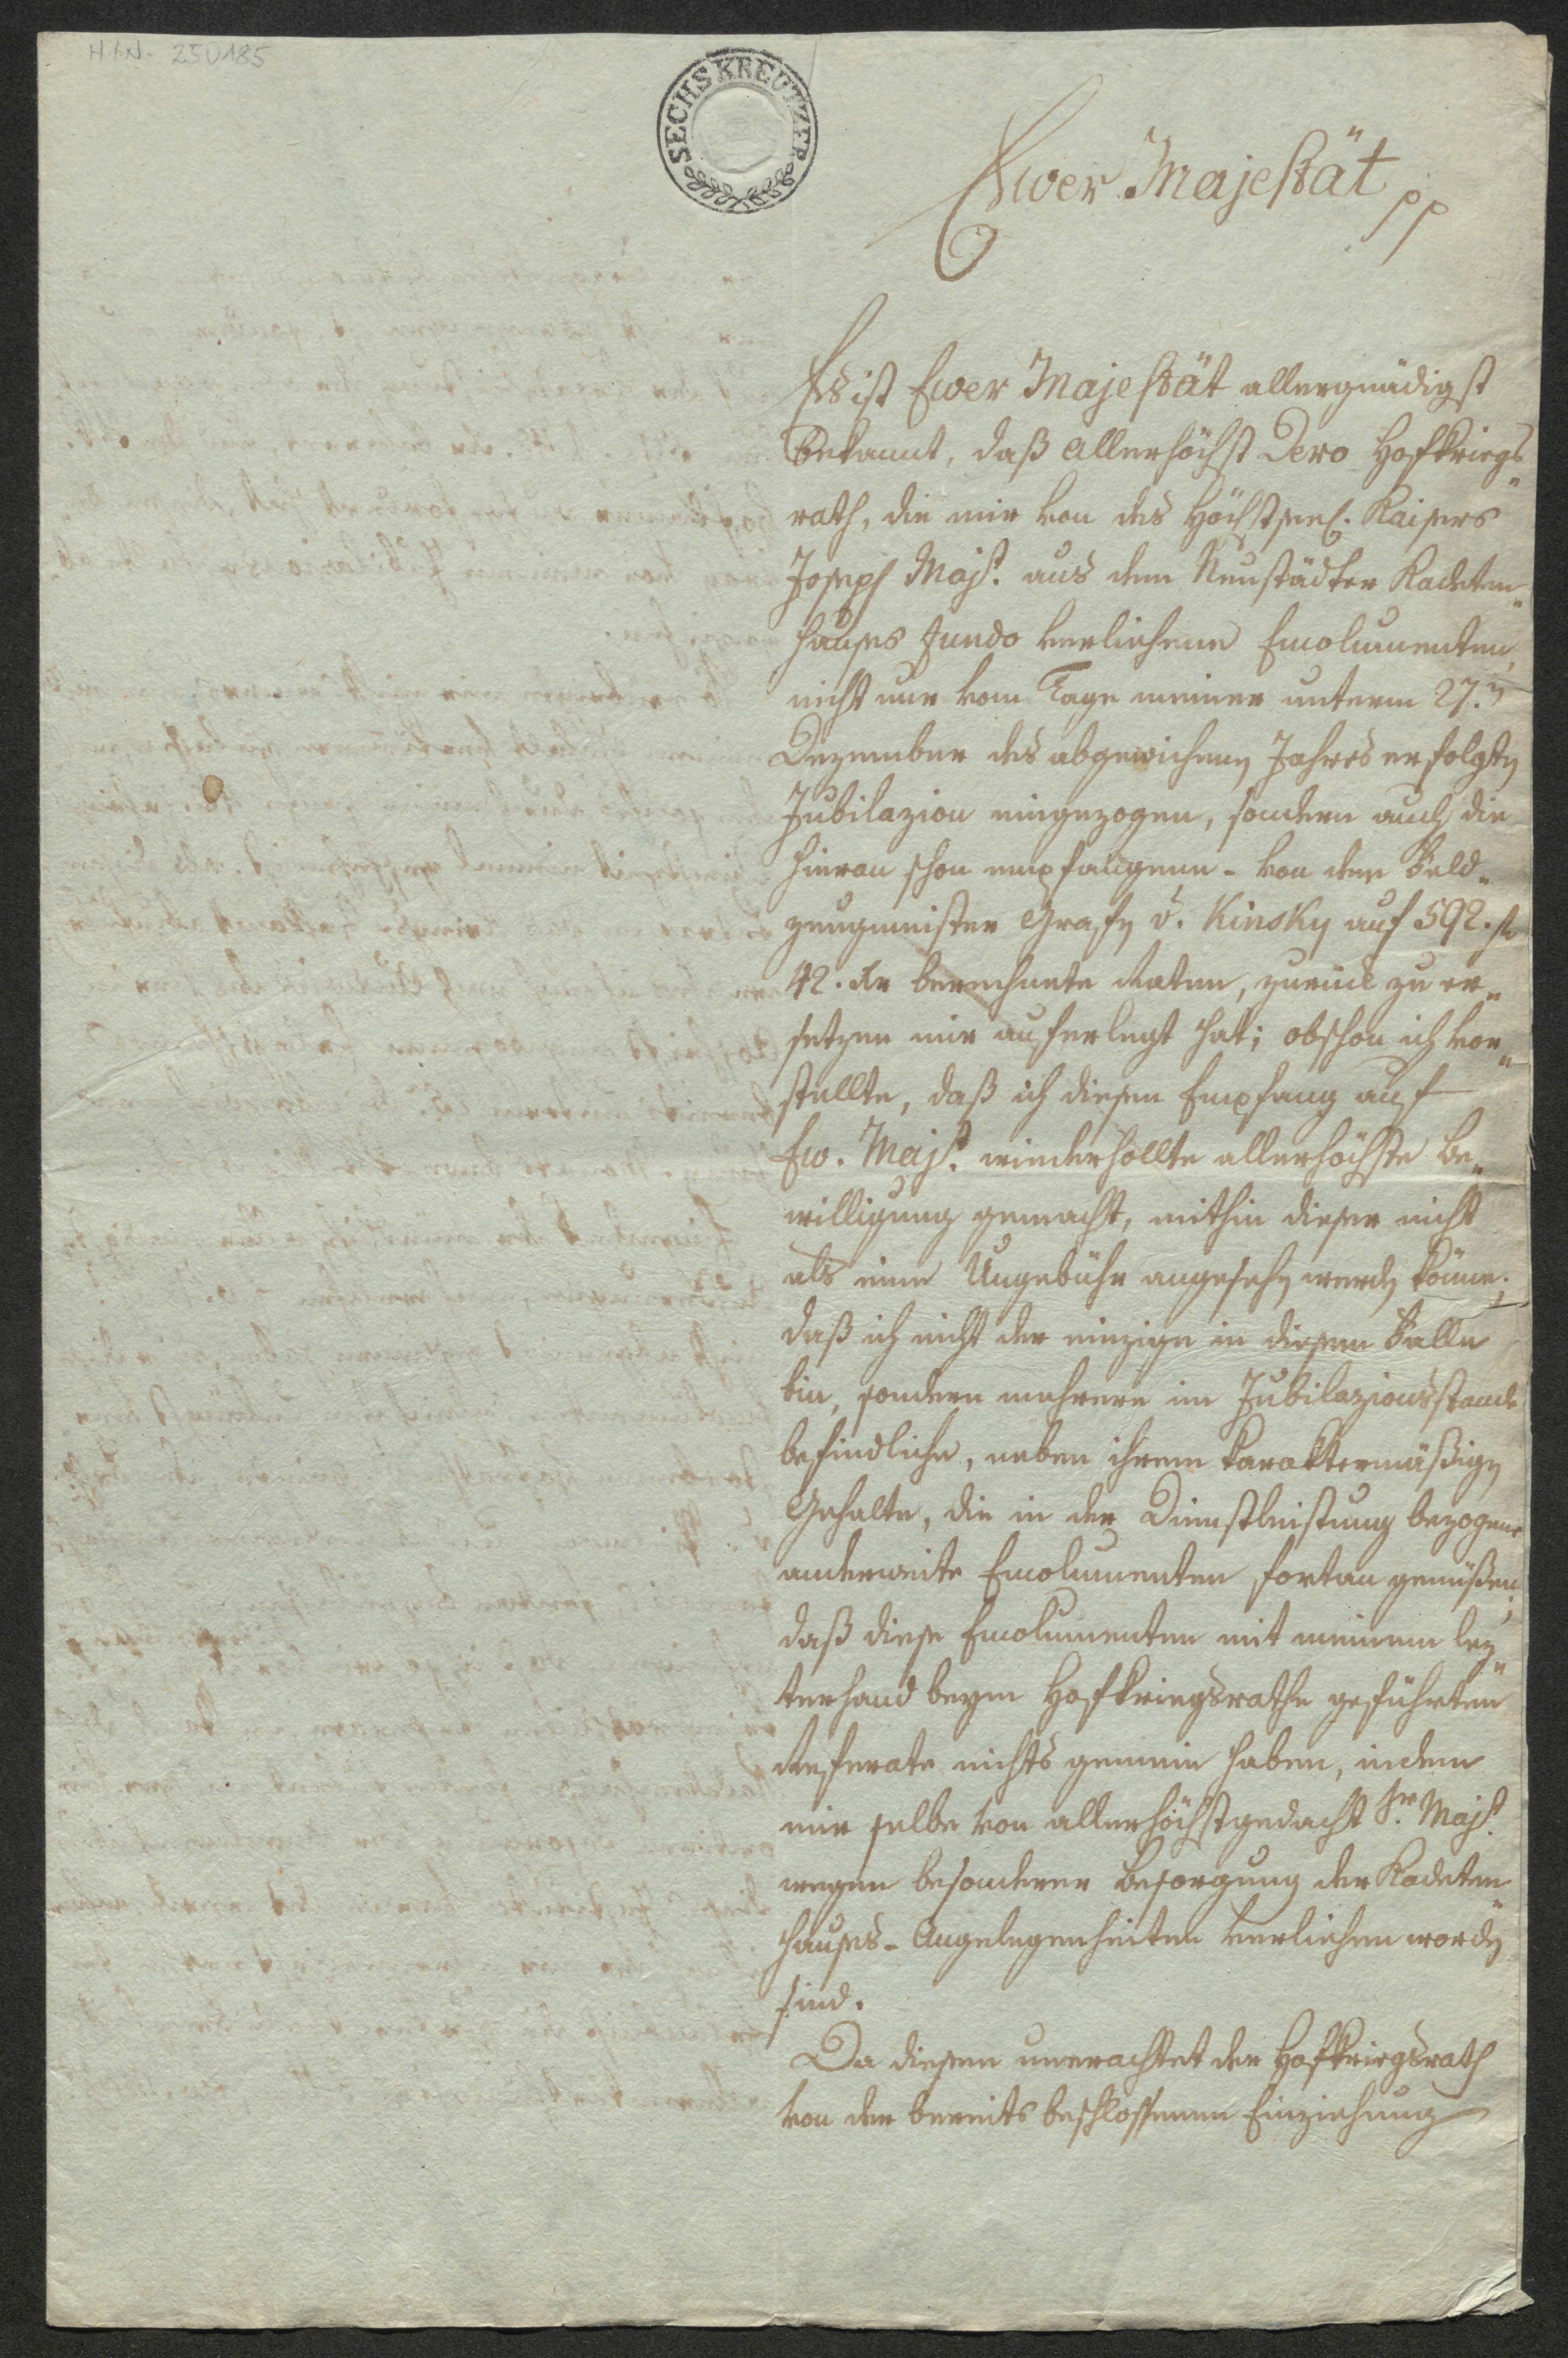 H.I.N. 250185
SECHS KREUTZER
Ewer Majestät pp
Es ist Ewer Majestät allergnädigst
bekannt, daß allerhöchst Dero Hofkriegs„
rath, die mir von des Höchstseel. Kaisers
Joseph Majt. aus dem Neustädter Kadeten„
hauses Fundo verliehene Emolumenten,
nicht nur vom Tage meiner unterm 27.n
Dezember des abgewichenen Jahres erfolgten
Jubilazion eingezogen, sondern auch die
hieran schon empfangene - von dem Feld„
zeugmeister Grafen v. Kinsky auf 592. fl
42. kr berechnete Raten, zurück zu er„
setzen mir auferlegt hat; obschon ich vor„
stellte, daß ich diesen Empfang auf
Ew. Majt. wiederhollte allerhöchste Be„
willigung gemacht, mithin dieser nicht
als eine Ungebühr angesehen werden könne;
daß ich nicht der einzige in diesem Falle
bin, sondern mehrere im Jubilazionsstande
befindliche, neben ihrem karaktermäßigen
Gehalte, die in der Dienstleistung bezogene
anderweite Emolumenten fortan genüßen;
daß diese Emolumenten mit meinem lez„
terhand beym Hofkriegsrathe geführten
Referate nichts gemein haben, indem
mir selbe von allerhöchstgedacht Sr. Majt.
wegen besonderer Besorgung der Kadeten„
hauses-Angelegenheiten verliehen worden
sind.
Da diesem unerachtet der Hofkriegsrath
von der bereits beschlossenen Einziehung